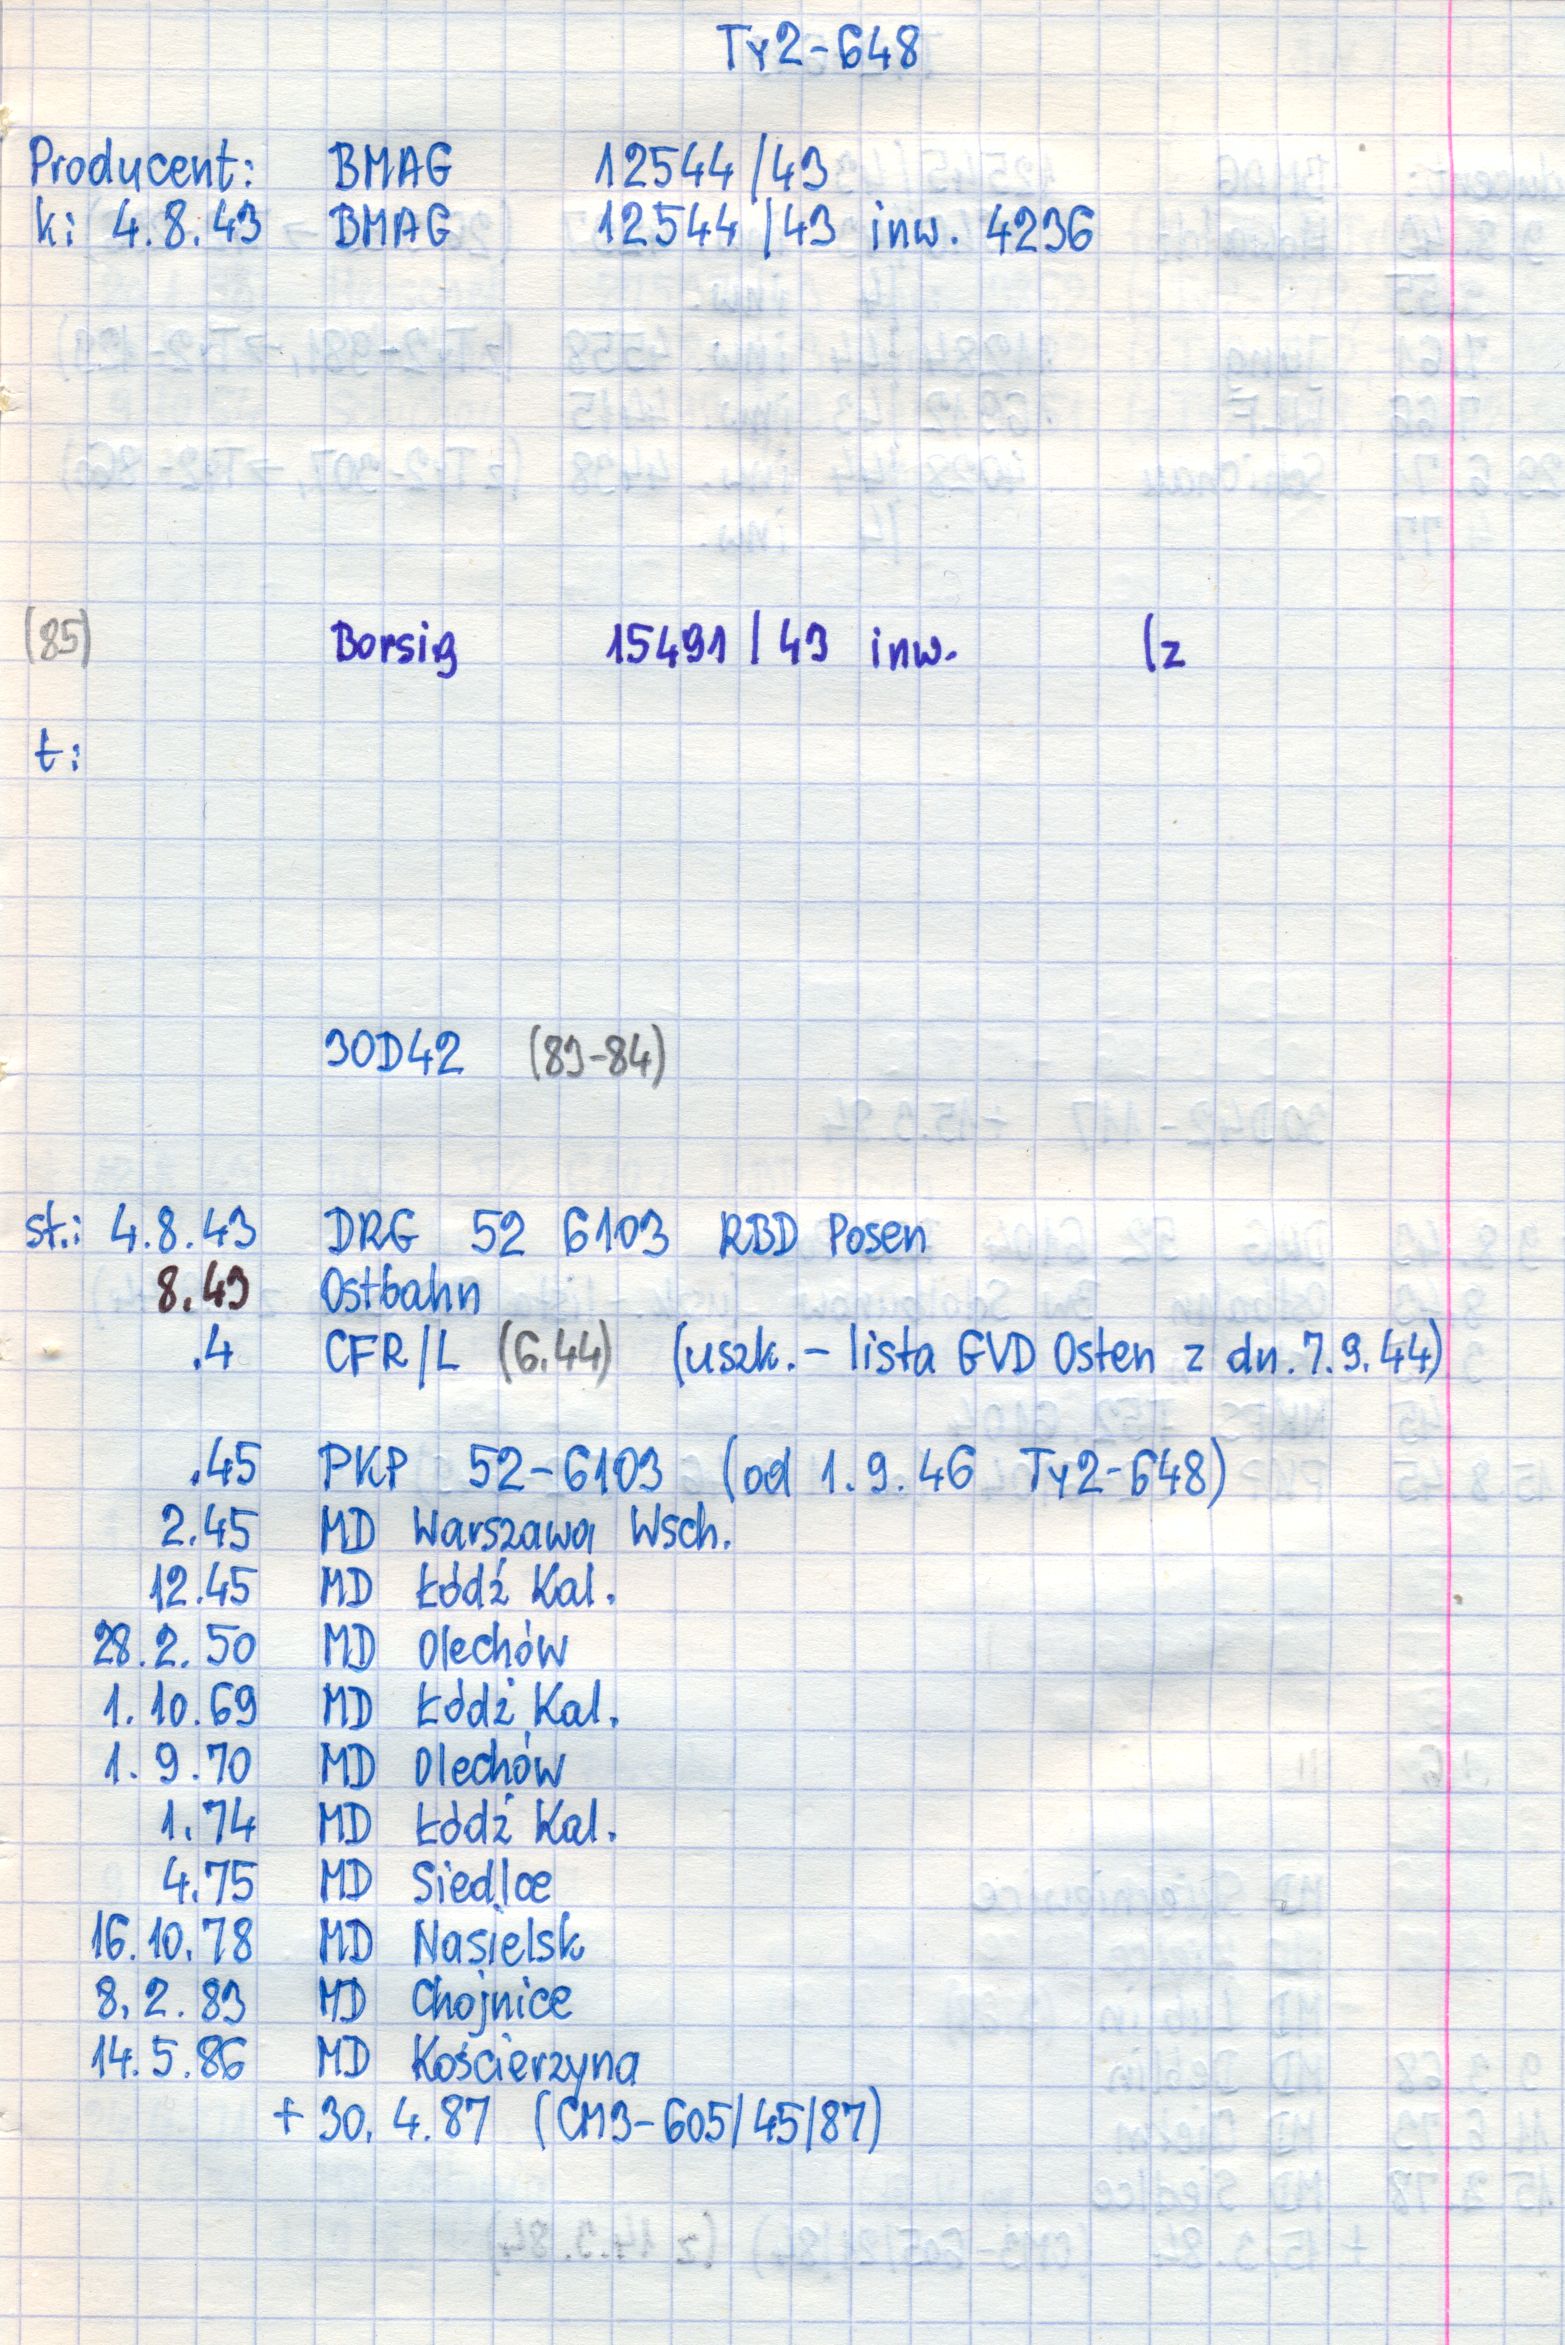 Ty2-648
Producent: BMAG 12544/43
k: 4.8.43 BMAG 12544/43 inw. 4236
(85) Borsig 15491/43 inw. (z
t:
30D42 (83-84)
st.: 4.8.43 DRG 52 6103 RBD Posen
8.43 Ostbahn
.4 CFR/L (6.44) (uszk. - lista GVD Osten z dn. 7.9.44)
.45 PKP 52-6103 (od 1.9.46 Ty2-648)
2.45 MD Warszawa Wsch.
12.45 MD Łódź Kal.
28.2.50 MD Olechów
1.10.69 MD Łódź Kal.
1.9.70 MD Olechów
1.74 MD Łódź Kal.
4.75 MD Siedlce
16.10.78 MD Nasielsk
8.2.83 MD Chojnice
14.5.86 MD Kościerzyna
+ 30.4.87 (CM3-605/45/87)